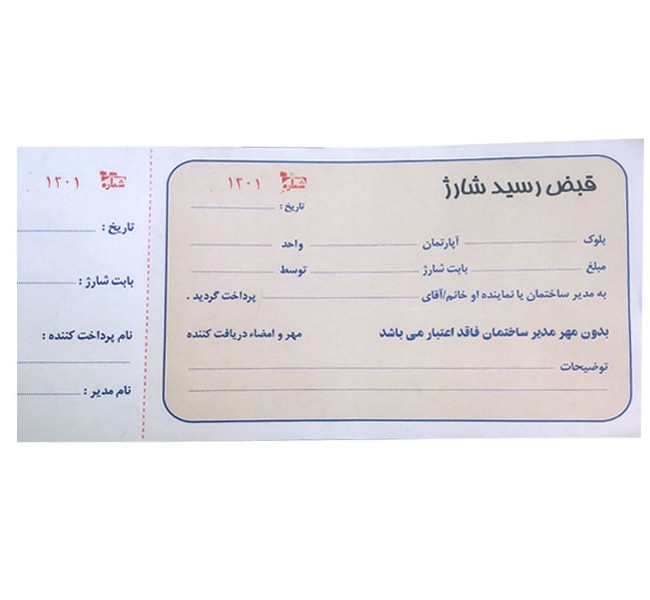 قبض رسید شارژ
شماره ۱۳۰۱
تاریخ :
بلوک آپارتمان واحد
مبلغ بابت شارژ توسط
به مدیر ساختمان یا نماینده او خانم/آقای پرداخت گردید .
بدون مهر مدیر ساختمان فاقد اعتبار می باشد مهر و امضاء دریافت کننده
توضیحات
شماره ۱۳۰۱
تاریخ :
بابت شارژ :
نام پرداخت کننده :
نام مدیر :